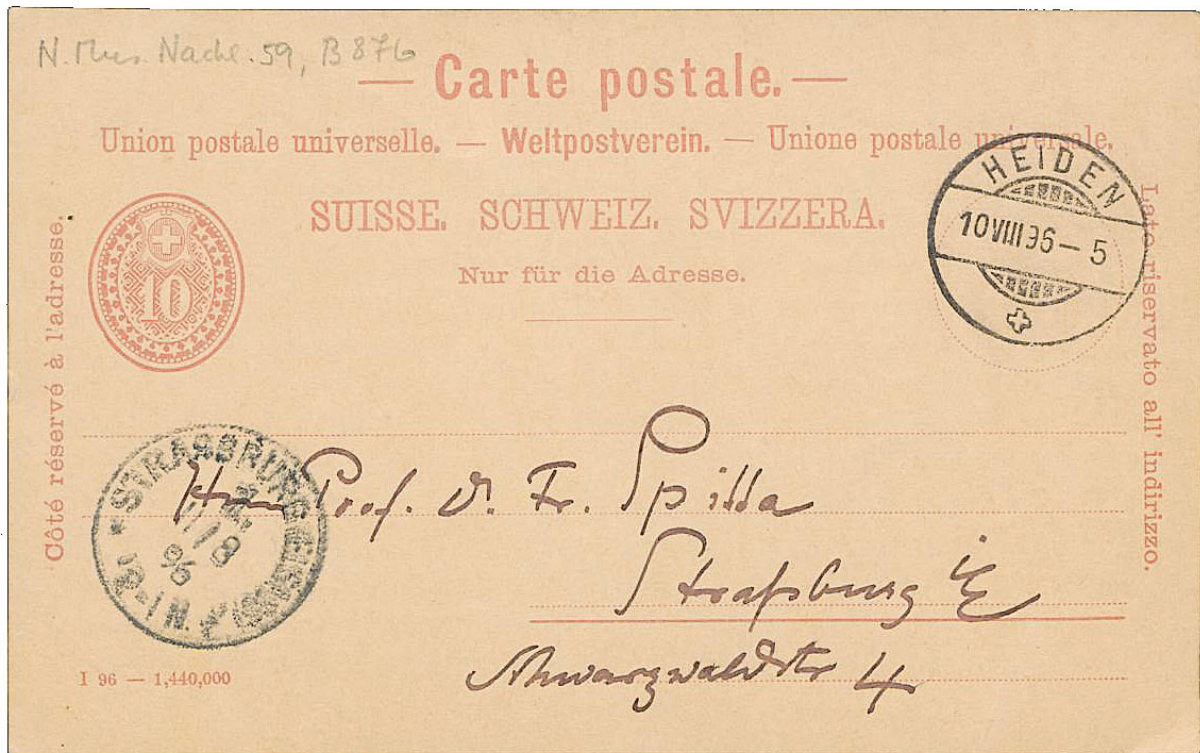 N. Mus. Nachl. 59, B 876
— Carte postale. —
Union postale universelle. — Weltpostverein. — Unione postale universale.
SUISSE. SCHWEIZ. SVIZZERA.
Nur für die Adresse.
Côté réservé à l'adresse.
10
HEIDEN
10 VIII 96 – 5
Lato riservato all' indirizzo.
STRASSBURG
11/8
96
12-1 N.
Herrn Prof. D. Fr. Spitta
Straßburg i/E
Schwarzwaldstr 4
I 96 — 1,440,000